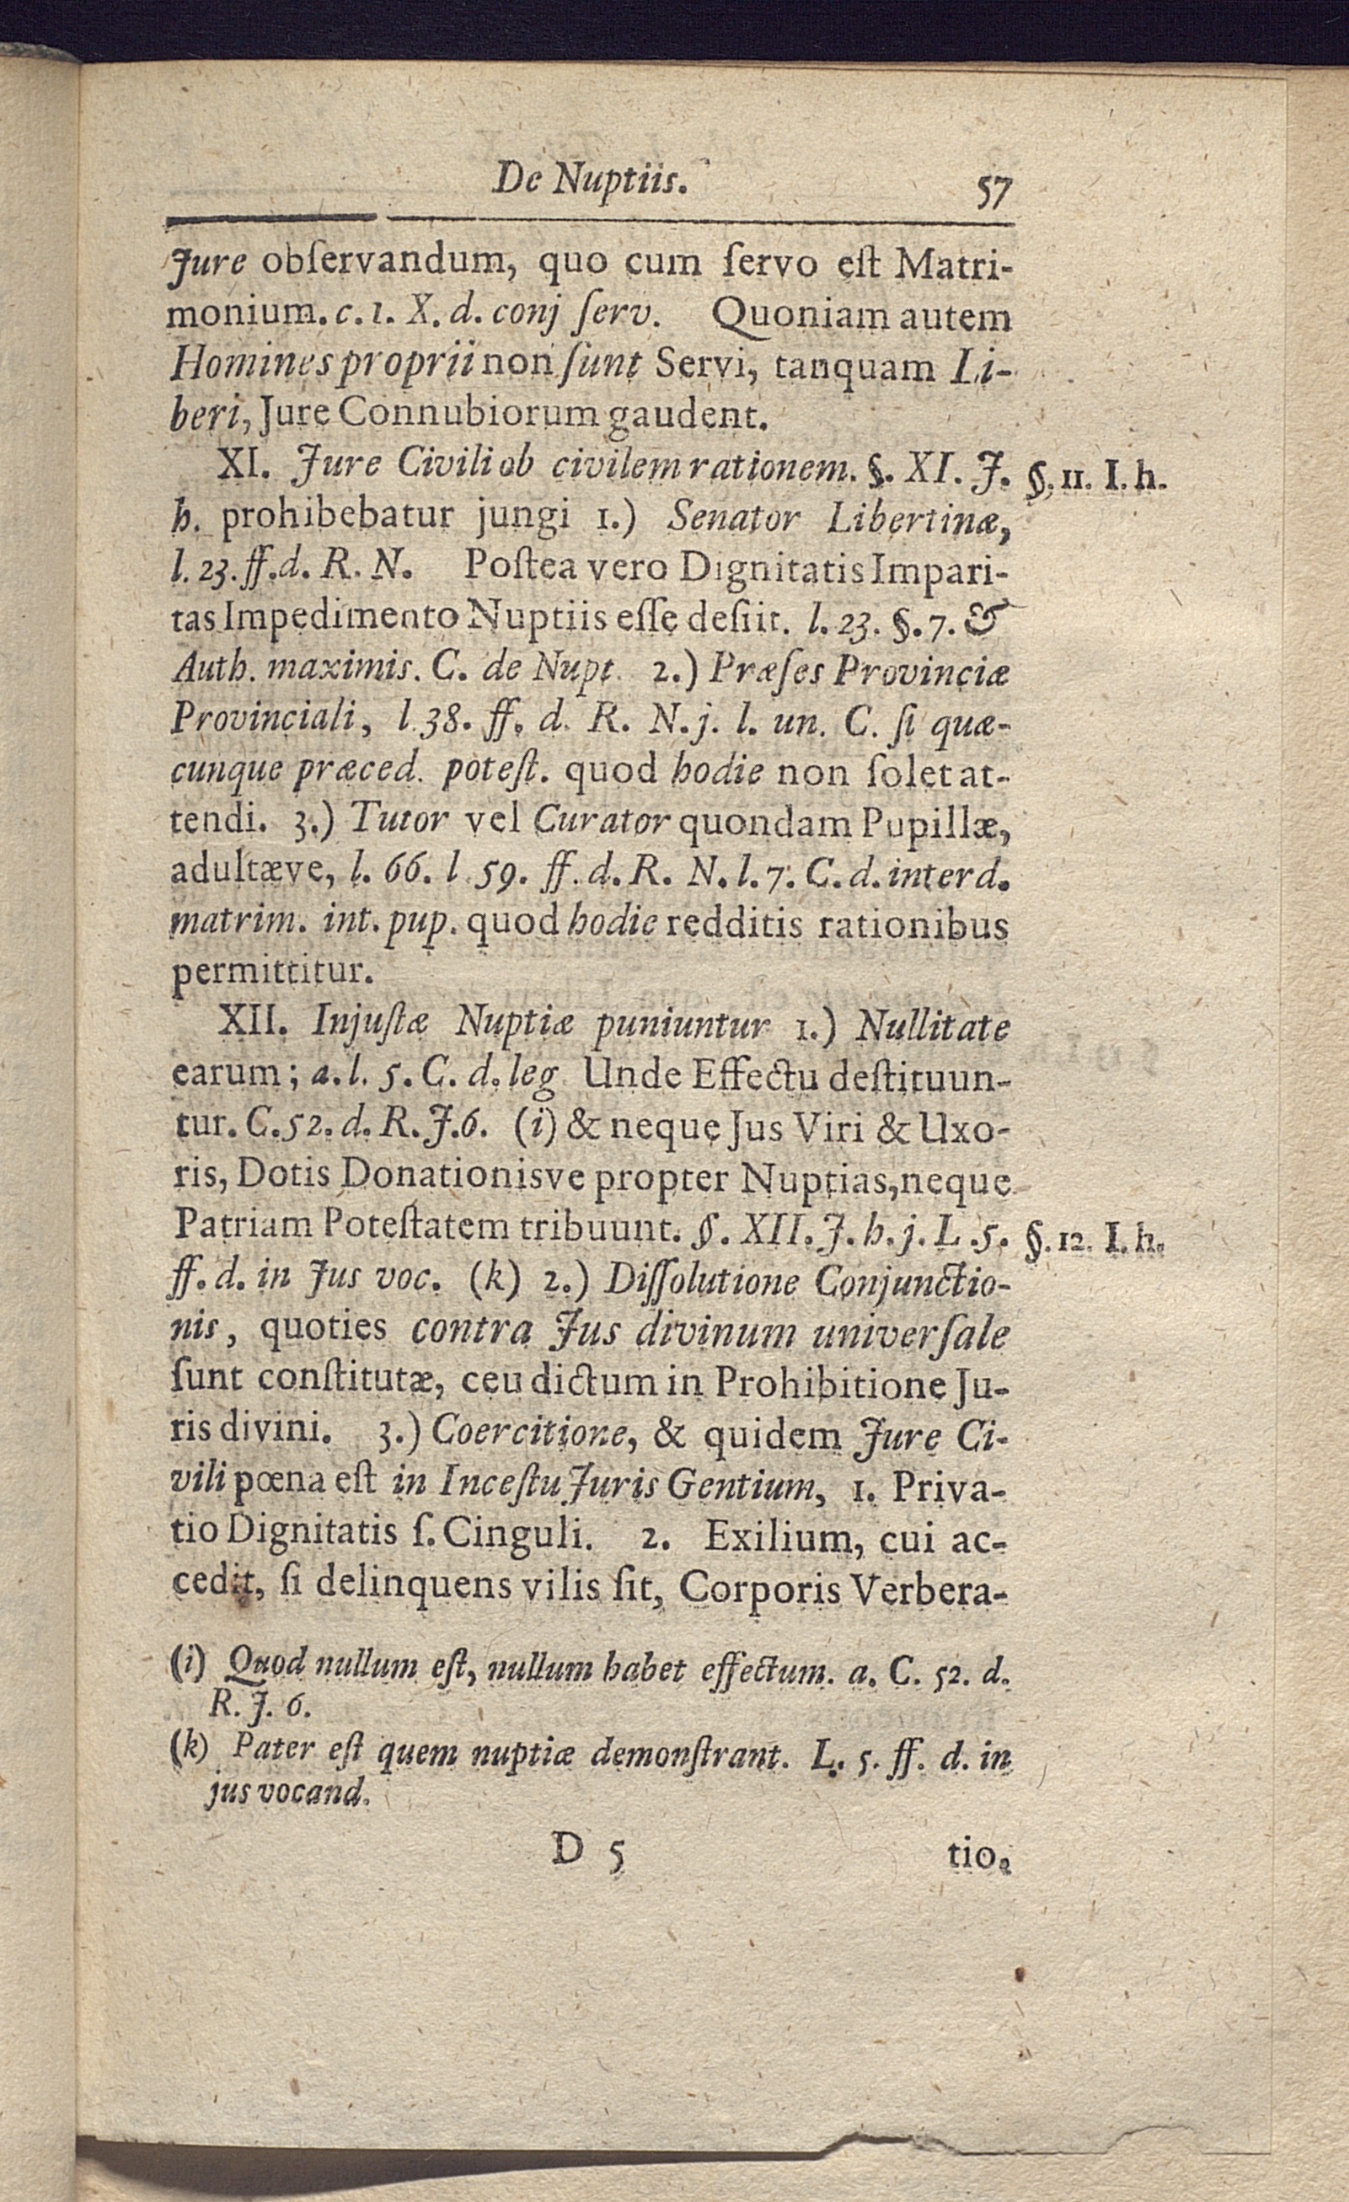 De Nuptiis. 57
Jure obſervandum, quo cum ſervo eſt Matri-
monium. c. 1. X. d. conj ſerv. Quoniam autem
Homines proprii non ſunt Servi, tanquam Li-
beri, Jure Connubiorum gaudent.
XI. Jure Civili ob civilem rationem. §. XI. J. §. 11. I. h.
h. prohibebatur jungi 1.) Senator Libertinæ,
l. 23. ff. d. R. N. Poſtea vero Dignitatis Impari-
tas Impedimento Nuptiis eſſe deſiit. l. 23. §. 7. &
Auth. maximis. C. de Nupt. 2.) Præſes Provinciæ
Provinciali, l. 38. ff. d. R. N. j. l. un. C. ſi quæ-
cunque præced. poteſt. quod hodie non ſolet at-
tendi. 3.) Tutor vel Curator quondam Pupillæ,
adultæve, l. 66. l. 59. ff. d. R. N. l. 7. C. d. interd.
matrim. int. pup. quod hodie redditis rationibus
permittitur.
XII. Injuſtæ Nuptiæ puniuntur 1.) Nullitate
earum; a. l. 5. C. d. leg Unde Effectu deſtituun-
tur. C. 52. d. R. J. 6. (i) & neque Jus Viri & Uxo-
ris, Dotis Donationisve propter Nuptias, neque
Patriam Poteſtatem tribuunt. §. XII. J. h. j. L. 5. §. 12. I. h.
ff. d. in Jus voc. (k) 2.) Diſſolutione Conjunctio-
nis, quoties contra Jus divinum univerſale
ſunt conſtitutæ, ceu dictum in Prohibitione Ju-
ris divini. 3.) Coercitione, & quidem Jure Ci-
vili pœna eſt in Inceſtu Juris Gentium, 1. Priva-
tio Dignitatis ſ. Cinguli. 2. Exilium, cui ac-
cedit, ſi delinquens vilis ſit, Corporis Verbera-
(i) Quod nullum eſt, nullum habet effectum. a. C. 52. d.
R. J. 6.
(k) Pater eſt quem nuptiæ demonſtrant. L. 5. ff. d. in
jus vocand.
D 5 tio.